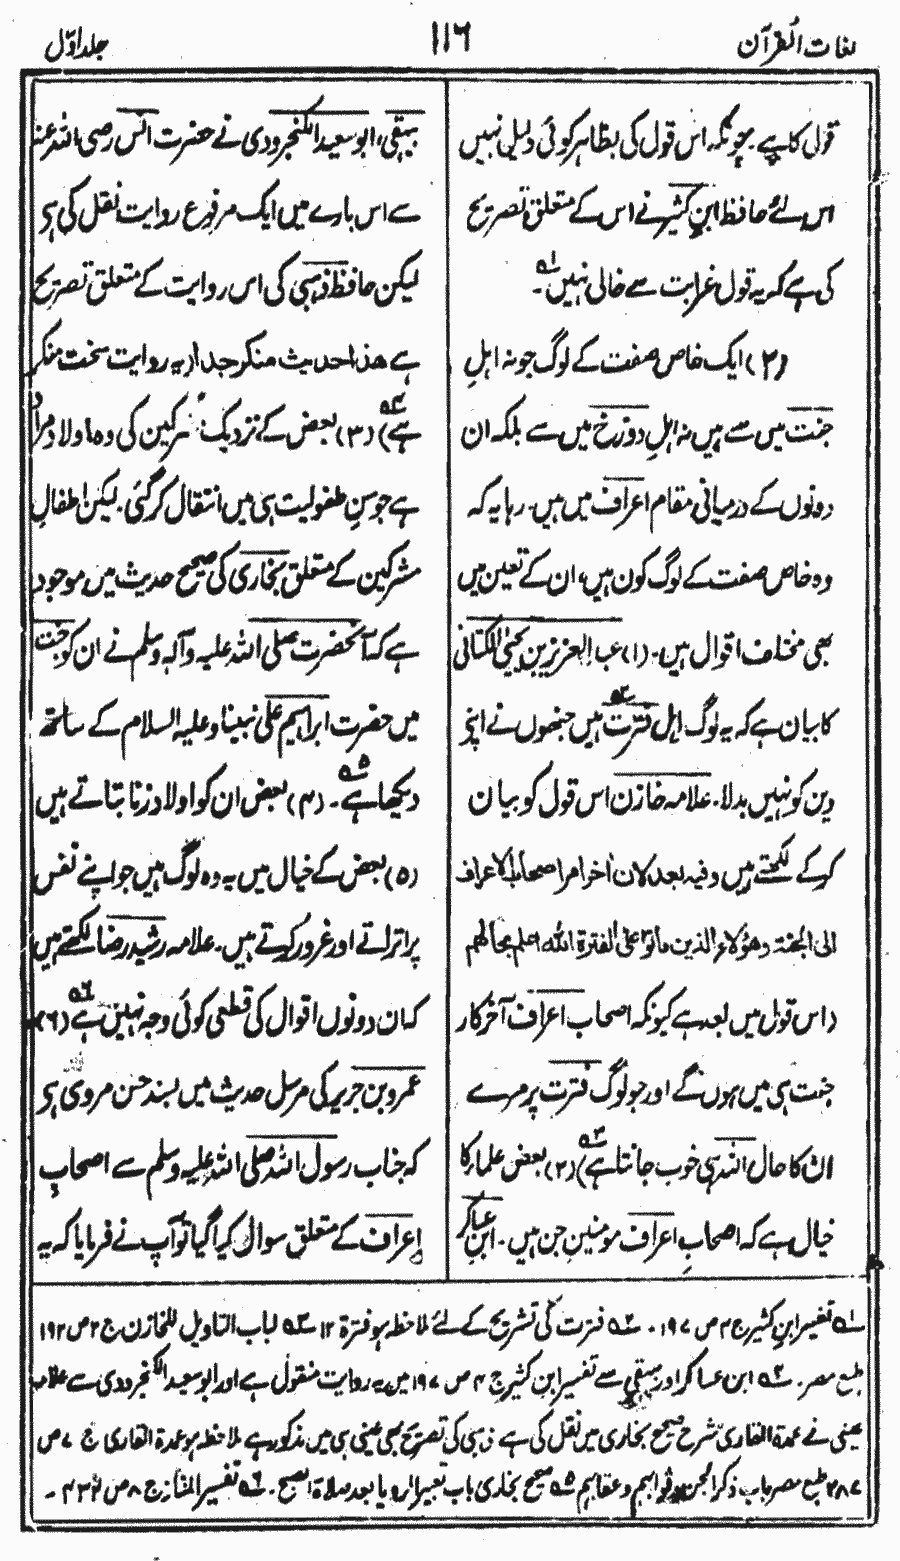 لغات القرآن
۱۱۶
جلد اوّل
قول کا ہے۔ چونکہ اس قول کی بظاہر کوئی دلیل نہیں
اس لئے حافظ ابنِ کثیر نے اس کے متعلق تصریح
کی ہے کہ یہ قول غرابت سے خالی نہیں ۱ے۔
(۲) ایک خاص صفت کے لوگ جو نہ اہلِ
جنت میں سے ہیں نہ اہلِ دوزخ میں سے بلکہ ان
دونوں کے درمیانی مقام اعراف میں ہیں۔ رہا یہ کہ
وہ خاص صفت کے لوگ کون ہیں، ان کے تعین میں
بھی مختلف اقوال ہیں۔ (۱) عبد العزیز بن یحییٰ الکتانی
کا بیان ہے کہ یہ لوگ اہل فترت ۲ے ہیں جنھوں نے اپنی
دین کو نہیں بدلا۔ علامہ خازن اس قول کو بیان
کرکے لکھتے ہیں وفیہ بعد لان اٰخر امر اصحاب الاعراف
الی الجنۃ وھؤلاء الذین ماتوا علی الفترۃ اللہ اعلم بحالھم
(اس قول میں بعد ہے کیونکہ اصحاب اعراف آخرکار
جنت ہی میں ہوں گے اور جو لوگ فترت پر مرے
ان کا حال اللہ ہی خوب جانتا ہے ۳ے) (۲) بعض علماء کا
خیال ہے کہ اصحابِ اعراف مومنین جن ہیں۔ ابن عساکر
بیہقی، ابو سعید الکنجرودی نے حضرت انس رضی اللہ عنہ
سے اس بارے میں ایک مرفوع روایت نقل کی ہی
لیکن حافظ ذہبی کی اس روایت کے متعلق تصریح
ہے ھذا احدیث منکر جدا (یہ روایت سخت منکر
ہے ۴ے) (۳) بعض کے نزدیک مشرکین کی وہ اولاد مراد
ہے جو سنِ طفولیت ہی میں انتقال کر گئی۔ لیکن اطفالِ
مشرکین کے متعلق بخاری کی صحیح حدیث میں موجود
ہے کہ آنحضرت صلی اللہ علیہ وآلہ وسلم نے ان کو جنت
میں حضرت ابراہیم علی نبینا وعلیہ السلام کے ساتھ
دیکھا ہے ۵ے۔ (۴) بعض ان کو اولادِ زنا بتاتے ہیں
(۵) بعض کے خیال میں یہ وہ لوگ ہیں جو اپنے نفس
پر اتراتے اور غرور کرتے ہیں۔ علامہ رشید رضا لکھتے ہیں
کہ ان دونوں اقوال کی قطعی کوئی وجہ نہیں ہے ۶ے (۶)
عمرو بن جریر کی مرسل حدیث میں بسند حسن مروی ہی
کہ جناب رسول اللہ صلی اللہ علیہ وسلم سے اصحابِ
اعراف کے متعلق سوال کیا گیا تو آپ نے فرمایا کہ یہ
۱ے تفسیر ابن کثیر ج ۴ ص ۱۹۷۔ ۲ے فترت کی تشریح کے لئے ملاحظہ ہو فترۃ ۱۲ ۳ے لباب التاویل للخازن ج ۲ ص ۱۹۲
طبع مصر۔ ۴ے ابن عساکر اور بیہقی سے تفسیر ابن کثیر ج ۴ ص ۱۹۷ میں یہ روایت منقول ہے اور ابو سعید الکنجرودی سے علامہ
عینی نے عمدۃ القاری شرح صحیح بخاری میں نقل کی ہے ذہبی کی تصریح بھی عینی ہی میں مذکور ہے ملاحظہ ہو عمدۃ القاری ج ۷ ص
۲۸۷ طبع مصر باب ذکر الجن وثوابہم وعقابہم ۵ے صحیح بخاری باب تعبیر الرویا بعد صلاۃ الصبح۔ ۶ے تفسیر المنار ج ۸ ص ۴۳۲۔